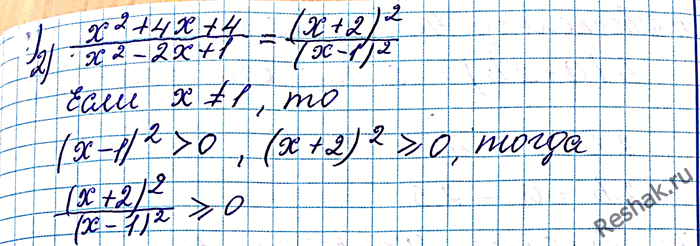 2) (x²+4x+4)/(x²-2x+1) = (x+2)²/(x-1)²
Если x≠1, то
(x-1)²>0, (x+2)²≥0, тогда
(x+2)²/(x-1)² ≥ 0
Reshak.ru